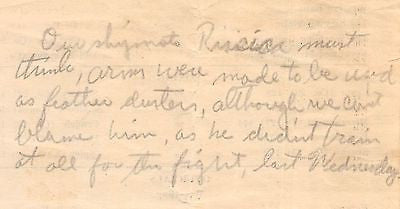 Our shipmate must
think, arms were made to be used
as feather dusters, although we can't
blame him, as he didn't train
at all for the fight, last Wednesday.